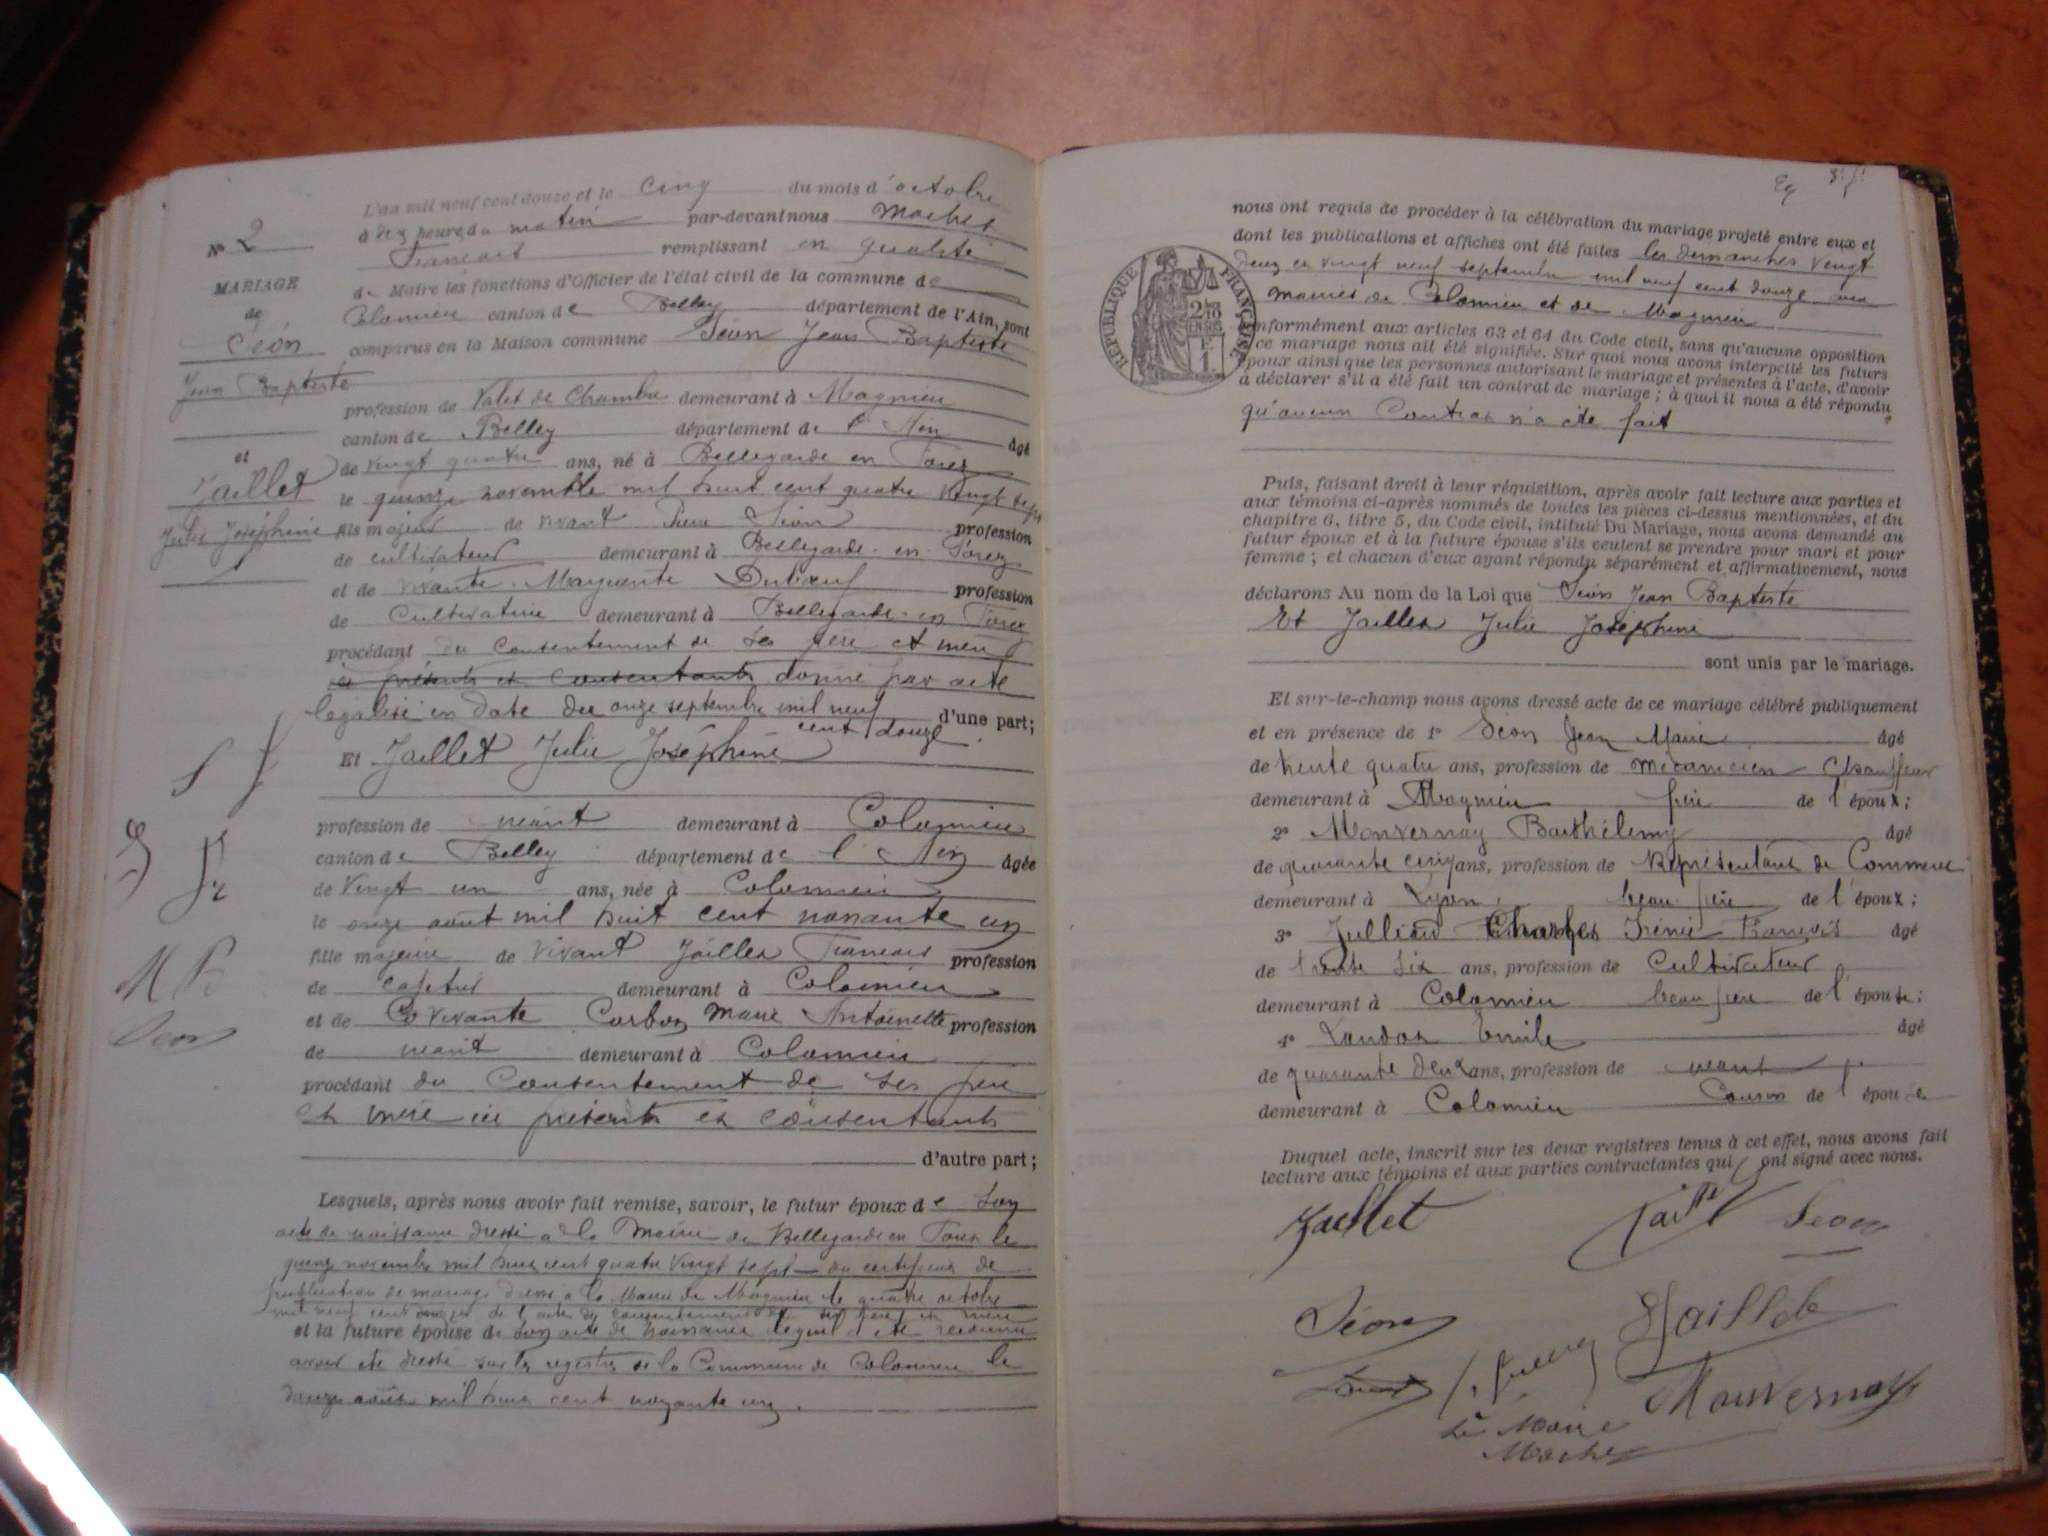 L'an mil neuf cent douze et le cinq du mois d'octobre
à dix heures du matin par-devant nous Mochet
François remplissant en qualité
de Maire les fonctions d'Officier de l'état civil de la commune de
Colomieu canton de Belley département de l'Ain, sont
comparus en la Maison commune Séon Jean Baptiste
N° 2
MARIAGE
de
Séon
Jean Baptiste
et
Jaillet
Julie Joséphine
profession de Valet de Chambre demeurant à Magnieu
canton de Belley département de l'Ain âgé
de vingt quatre ans, né à Bellegarde en Forez
le quinze novembre mil huit cent quatre vingt sept
fils majeur de vivant Pierre Séon profession
de cultivateur demeurant à Bellegarde-en-Forez
et de vivante Marguerite Duboeuf profession
de Cultivatrice demeurant à Bellegarde-en Forez
procédant du consentement de ses père et mère
ici présents et consentants donné par acte
légalisé en date du onze septembre mil neuf d'une part;
cent douze
Et Jaillet Julie Joséphine
profession de néant demeurant à Colomieu
canton de Belley département de l'Ain âgée
de vingt un ans, née à Colomieu
le onze août mil huit cent nonante un
fille majeure de vivant Jaillet François profession
de demeurant à Colomieu
et de vivante Corbon Marie Antoinette profession
de néant demeurant à Colomieu
procédant du Consentement de ses père
et mère ici présents et consentants
d'autre part;
Lesquels, après nous avoir fait remise, savoir, le futur époux de son
acte de naissance dressé à la Mairie de Bellegarde en Forez le
quinze novembre mil huit cent quatre vingt sept du certificat de
publication de mariage dressé à la Mairie de Magnieu le quatre octobre
mil neuf cent douze de l'acte du consentement de ses père et mère
et la future épouse de son acte de naissance lequel a été reconnu
avoir été dressé sur les registres de la Commune de Colomieu le
douze août mil huit cent nonante un.
MB
Séon
nous ont requis de procéder à la célébration du mariage projeté entre eux et
dont les publications et affiches ont été faites les dimanches vingt
deux et vingt neuf septembre mil neuf cent douze aux
mairies de Colomieu et de Magnieu
conformément aux articles 63 et 64 du Code civil, sans qu'aucune opposition
à ce mariage nous ait été signifiée. Sur quoi nous avons interpellé les futurs
époux ainsi que les personnes autorisant le mariage et présentes à l'acte, d'avoir
à déclarer s'il a été fait un contrat de mariage; à quoi il nous a été répondu
qu'aucun Contrat n'a été fait
RÉPUBLIQUE FRANÇAISE
2/10 EN SUS
1F
Puis, faisant droit à leur réquisition, après avoir fait lecture aux parties et
aux témoins ci-après nommés de toutes les pièces ci-dessus mentionnées, et du
chapitre 6, titre 5, du Code civil, intitulé Du Mariage, nous avons demandé au
futur époux et à la future épouse s'ils veulent se prendre pour mari et pour
femme; et chacun d'eux ayant répondu séparément et affirmativement, nous
déclarons Au nom de la Loi que Séon Jean Baptiste
Et Jaillet Julie Joséphine
sont unis par le mariage.
Et sur-le-champ nous avons dressé acte de ce mariage célébré publiquement
et en présence de 1° Séon Jean Marie âgé
de trente quatre ans, profession de mécanicien Chauffeur
demeurant à Magnieu frère de l'époux;
2° Monvernay Barthélemy âgé
de quarante cinq ans, profession de Représentant de Commerce
demeurant à Lyon, beau frère de l'époux;
3° Jullien Charles Irénée François âgé
de trente six ans, profession de Cultivateur
demeurant à Colomieu beau frère de l'épouse;
4° Landoz Emile âgé
de quarante deux ans, profession de néant
demeurant à Colomieu Cousin de l'épouse
Duquel acte, inscrit sur les deux registres tenus à cet effet, nous avons fait
lecture aux témoins et aux parties contractantes qui ont signé avec nous.
Jaillet Jaillet Séon
Séon Jaillet
Monvernay
Le Maire
Mochet